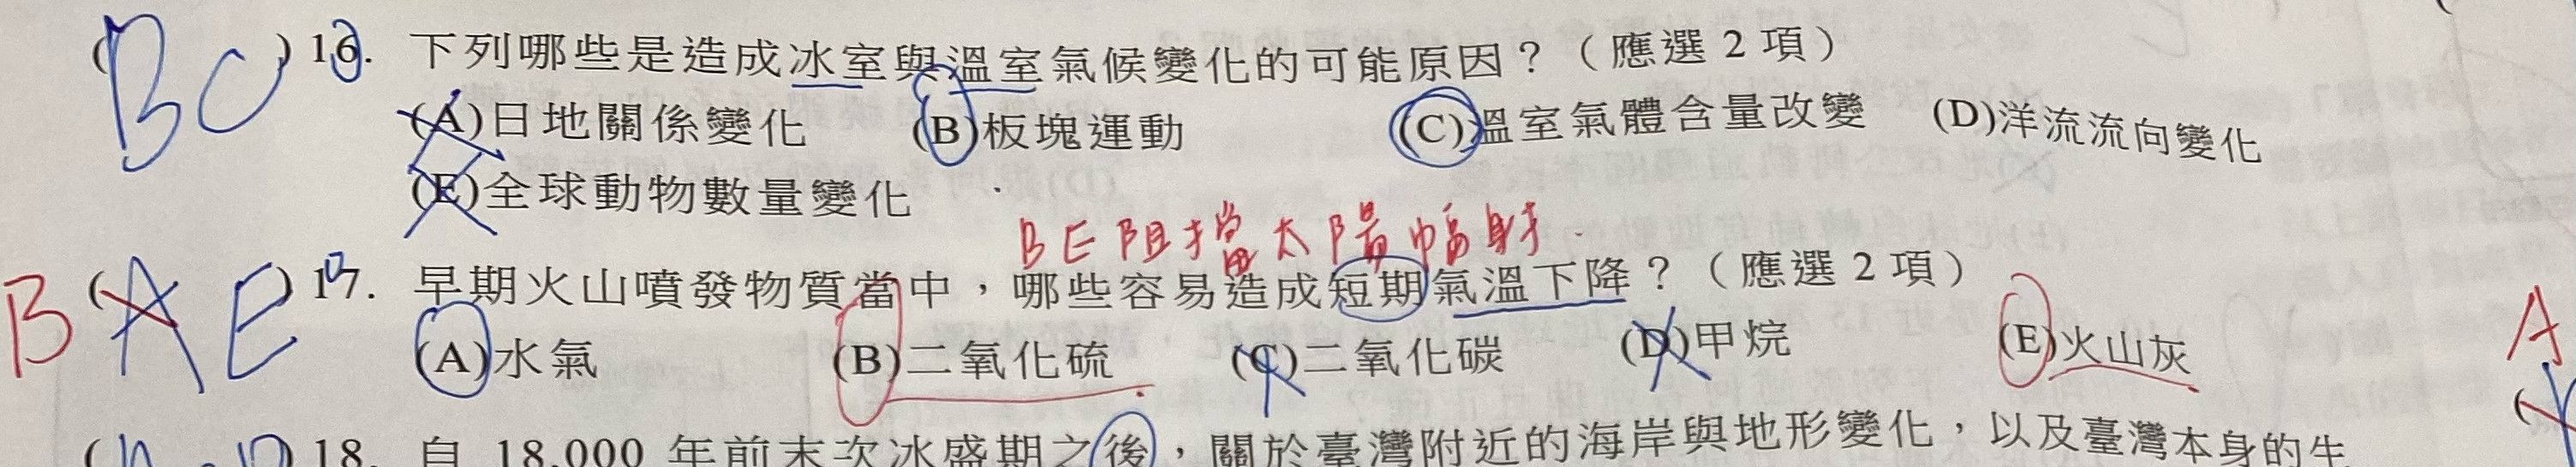 (BC) 16. 下列哪些是造成冰室與溫室氣候變化的可能原因？（應選 2 項）
(A)日地關係變化 (B)板塊運動 (C)溫室氣體含量改變 (D)洋流流向變化
(E)全球動物數量變化
BE阻擋太陽幅射.
B (AE) 17. 早期火山噴發物質當中，哪些容易造成短期氣溫下降？（應選 2 項）
(A)水氣 (B)二氧化硫 (C)二氧化碳 (D)甲烷 (E)火山灰
A
18. 自 18,000 年前末次冰盛期之後，關於臺灣附近的海岸與地形變化，以及臺灣本身的生